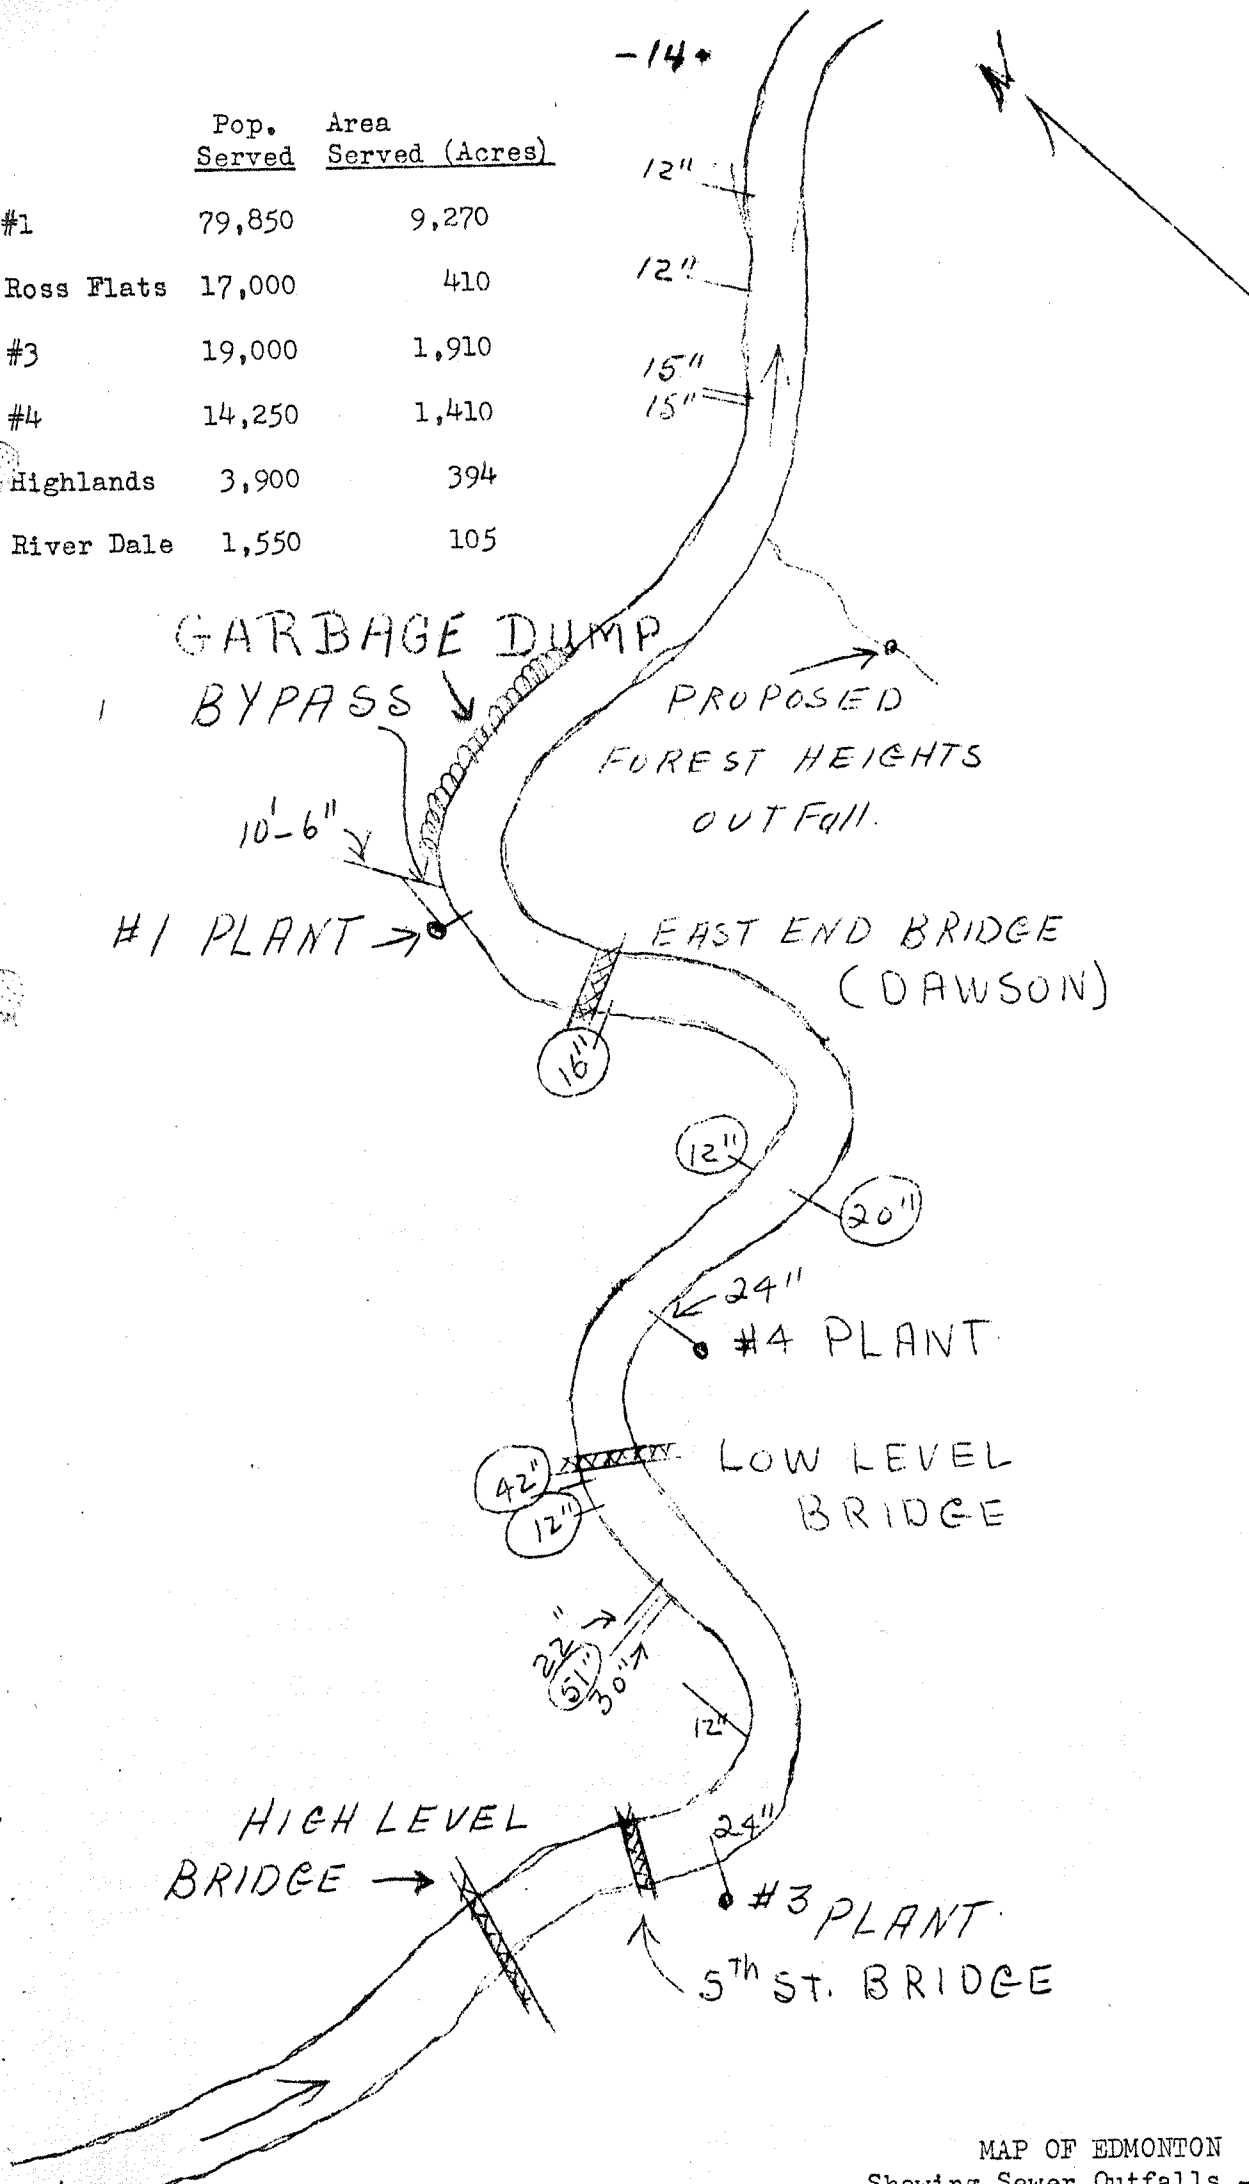 -14-
N
Pop. Area
Served Served (Acres)
#1 79,850 9,270
Ross Flats 17,000 410
#3 19,000 1,910
#4 14,250 1,410
Highlands 3,900 394
River Dale 1,550 105
12"
12"
15"
15"
GARBAGE DUMP
BYPASS
PROPOSED
FOREST HEIGHTS
OUTFall.
10'-6"
#1 PLANT
EAST END BRIDGE
(DAWSON)
16"
12"
20"
24"
#4 PLANT
LOW LEVEL
BRIDGE
42"
12"
22"
51"
30"
12"
HIGH LEVEL
BRIDGE
24"
#3 PLANT
5Th ST. BRIDGE
MAP OF EDMONTON
Showing Sewer Outfalls -